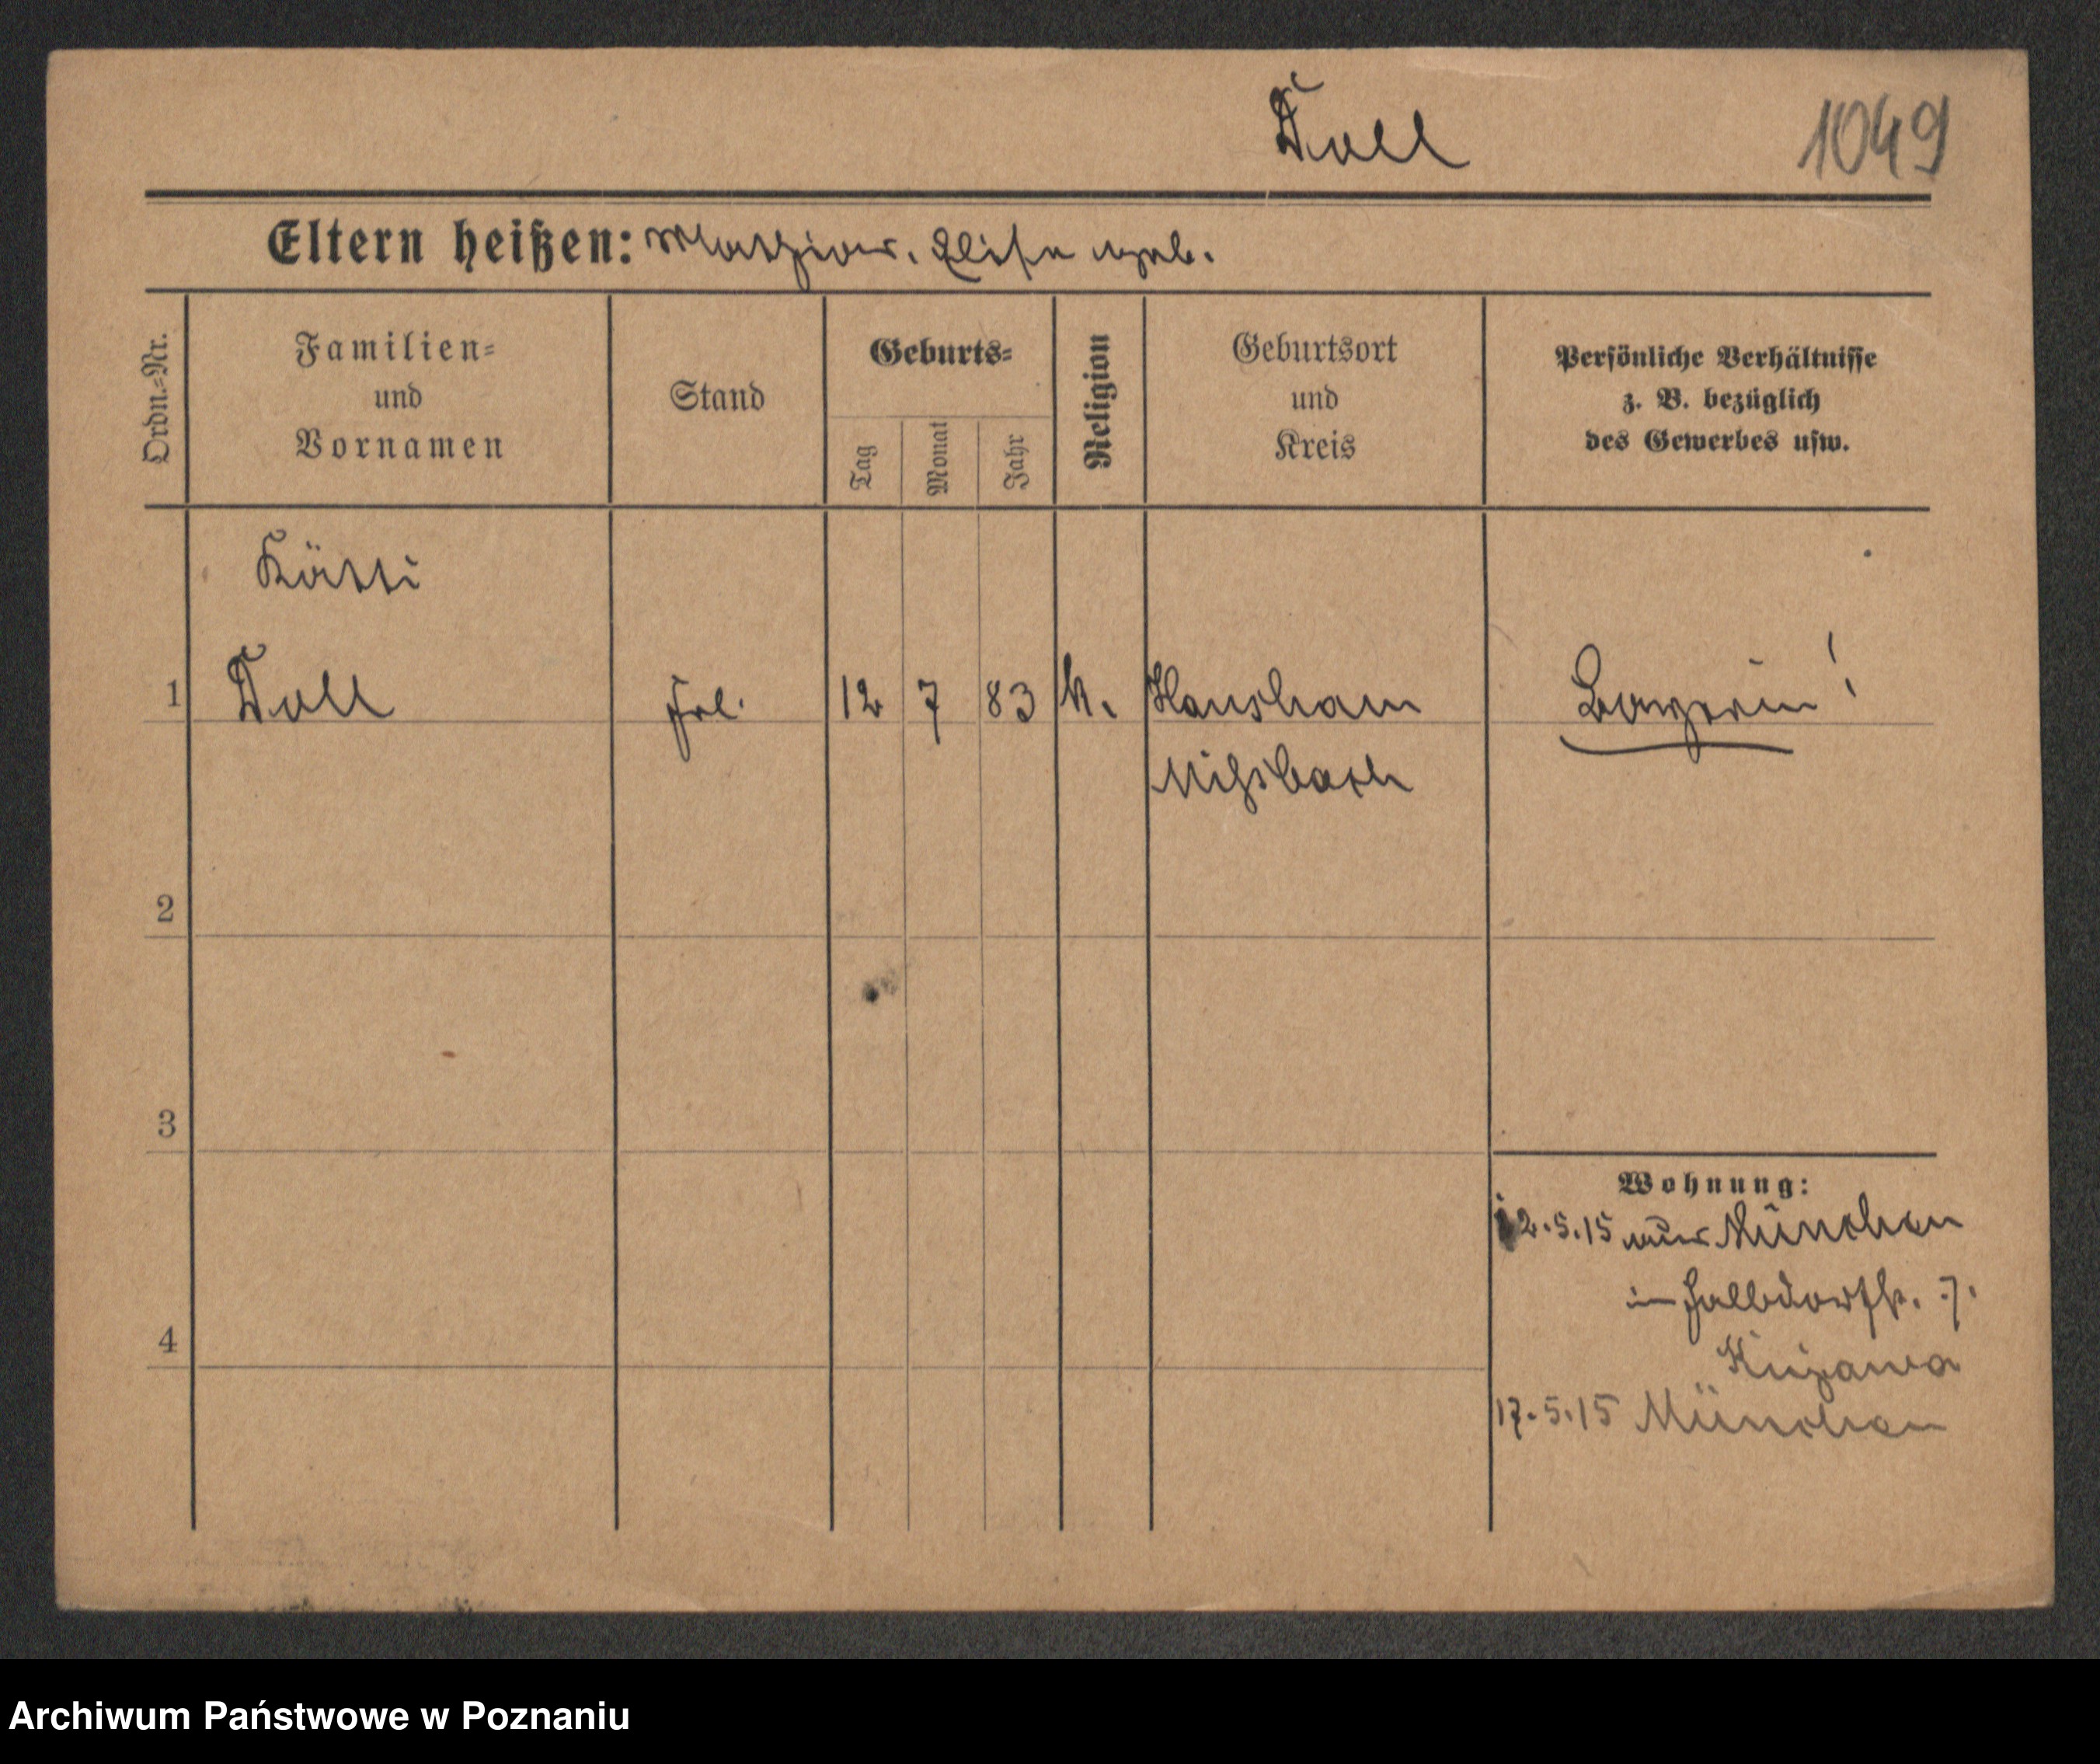 Doll 1049
Eltern heißen: Mathias. Elise geb.
Ordn.-Nr.
Familien-
und
Vornamen
Stand
Geburts-
Tag
Monat
Jahr
Religion
Geburtsort
und
Kreis
Persönliche Verhältnisse
z. B. bezüglich
des Gewerbes usw.
Kätti
1 Doll Frl. 12 7 83 k. Hausham Bayerin!
Mißbach
2
3
4
Wohnung:
12.5.15 aus München
in Halbdorfstr. 7.
Kujawa
17.5.15 München
Archiwum Państwowe w Poznaniu